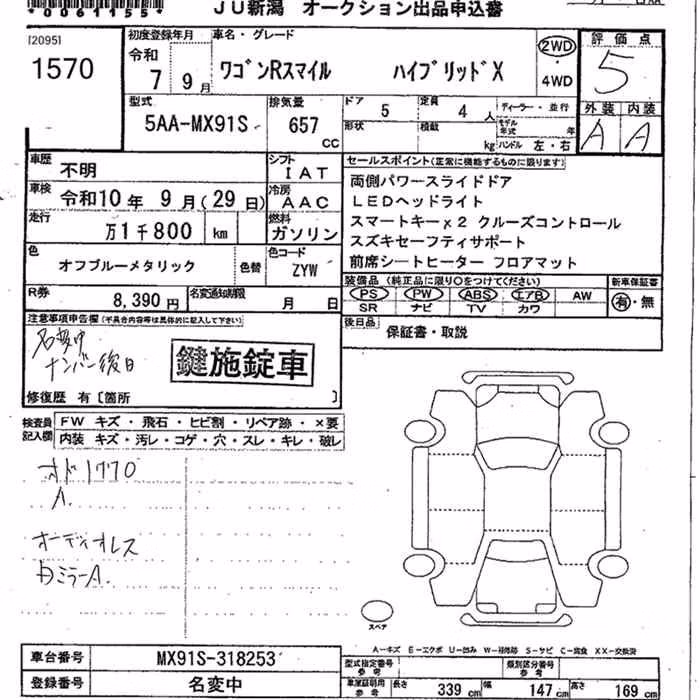 *0061155*
JU新潟 オークション出品申込書
[2095]
1570
初度登録年月
令和
7 9月
車名・グレード
ワゴンRスマイル ハイブリッドX
2WD
・
4WD
評価点
5
外装 内装
A A
型式
5AA-MX91S
排気量
657
cc
ドア
5
定員
4 人
形状
積載
kg
ディーラー・並行
モデル年式 年
ハンドル 左・右
車歴
不明
シフト
IAT
車検
令和10年 9月(29日)
冷房
AAC
走行
万1千800 km
燃料
ガソリン
色
オフブルーメタリック
色替
色コード
ZYW
R券
8,390円
名変通知期限
月 日
セールスポイント(正常に機能するものに限ります)
両側パワースライドドア
LEDヘッドライト
スマートキーx2 クルーズコントロール
スズキセーフティサポート
前席シートヒーター フロアマット
装備品 (純正品に限り○をつけてください)
PS PW ABS エアB AW
SR ナビ TV カワ
新車保証書
有・無
後日品
保証書・取説
注意事項申告欄(不具合内容等は具体的に記入して下さい)
名変中
ナンバー後日
鍵施錠車
修復歴 有〔箇所 〕
検査員
記入欄
FW キズ・飛石・ヒビ割・リペア跡・×要
内装 キズ・汚レ・コゲ・穴・スレ・キレ・破レ
オド1770
A.
オーディオレス
内ミラーA.
スペア
A-キズ E-エクボ U-凹み W-補修跡 S-サビ C-腐食 XX-交換済
車台番号
MX91S-318253
登録番号
名変中
型式指定番号
参考
類別区分番号
参考
車庫証明用
参考
長さ 339 cm
幅 147 cm
高さ 169 cm